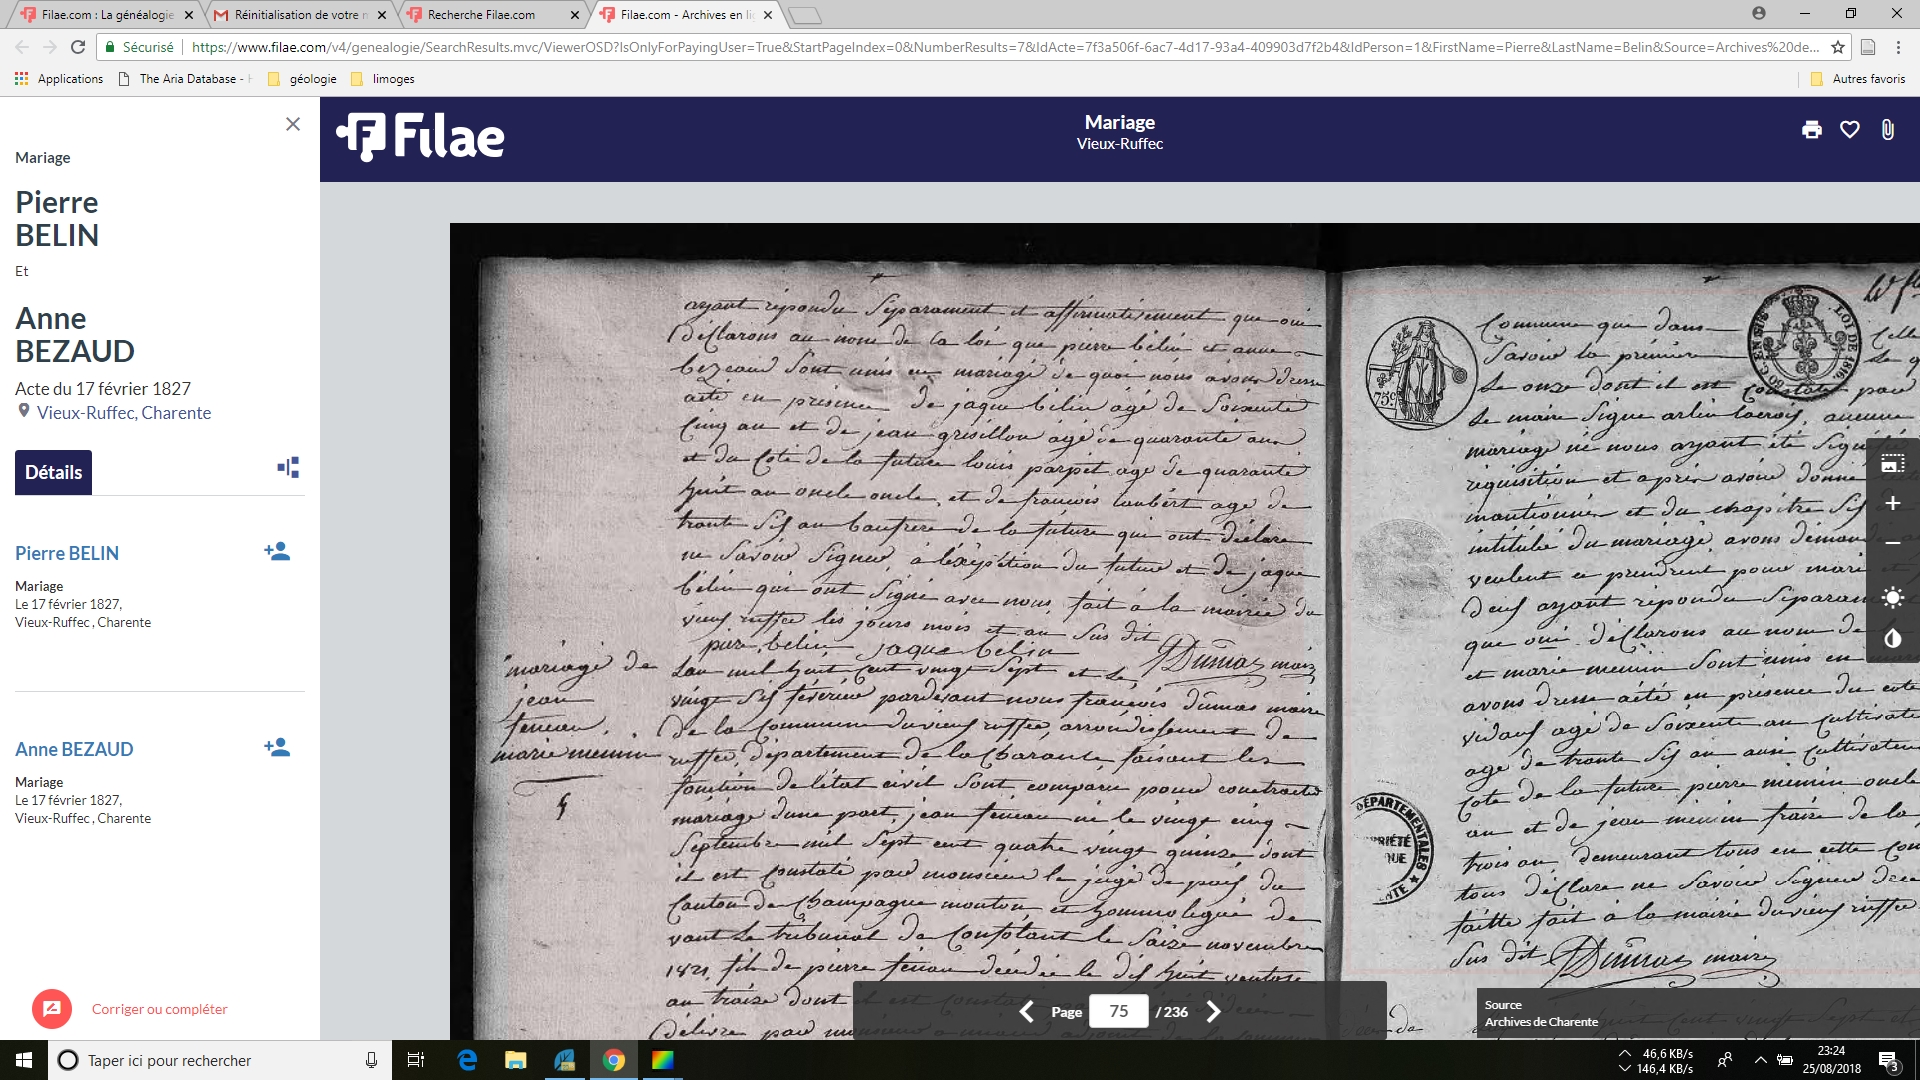 Filae.com : La généalogie
Réinitialisation de votre m
Recherche Filae.com
Filae.com - Archives en li
Sécurisé
https://www.filae.com/v4/genealogie/SearchResults.mvc/ViewerOSD?IsOnlyForPayingUser=True&StartPageIndex=0&NumberResults=7&IdActe=7f3a506f-6ac7-4d17-93a4-409903d7f2b4&IdPerson=1&FirstName=Pierre&LastName=Belin&Source=Archives%20de...
Applications
The Aria Database -
géologie
limoges
Autres favoris
Mariage
Pierre
BELIN
Et
Anne
BEZAUD
Acte du 17 février 1827
Vieux-Ruffec, Charente
Détails
Pierre BELIN
Mariage
Le 17 février 1827,
Vieux-Ruffec , Charente
Anne BEZAUD
Mariage
Le 17 février 1827,
Vieux-Ruffec , Charente
Corriger ou compléter
Filae
Mariage
Vieux-Ruffec
ayant répondu séparament et affirmativement que oui
déclarons au nom de la loi que pierre bélin et anne
bezeaud sont unis en mariage de quoi nous avons dressé
acte en présence de jaque bélin agé de soixente
cinq an et de jean grisillon agé de quarante an
et du coté de la future louis parpet agé de quarante
huit an oncle oncle, et de francois loubert agé de
trante six an baufrere de la future qui ont déclare
ne savoir signer, à l'éxéption du future et de jaque
bélin qui ont signé avec nous fait à la mairie du
vieux ruffec les jours mois et an sus dit
pierre bélin jaque belin Dumas maire
mariage de
jean
feneau
marie memin
5
Lan mil huit cent vingt sept et le
vingt six février pardevant nous francois dumas maire
de la commune du vieux ruffec, arrondissement de
ruffec, département de la Charante faisant les
fonction de létat civil sont comparu pour contracter
mariage dune part, jean feneau né le vingt cinq
Septembre mil sept cent quatre vingt quinze dont
il est constaté par monsieur le juge de paix du
canton de Champagne mouton et hommologué de
vant le tribunal de Confolant le saize novembre
1821, fils de pierre feneau décédée le dix huit ventose
an traize dont il est constaté
délivré par monsieur
75c
50 C. EN SUS
LOI DE 1816.
Commune que dans
savoir la première
le onze dont il est constaté par
le maire signé arlin lacroix, aucune
mariage ne nous ayant été signifié
réquisition et après avoir donné
mantionnées et du chapitre six
intitulé du mariage, avons demandé
veulent ce prendre pour mari
deux ayant répondu séparam
que oui déclarons au nom de
et marie memin sont unis en
avons dresse acte en présence du coté
vidaux agé de soixente an cultivate
agé de trante six an aussi cultivateur
coté de la future pierre memin oncle
an et de jean memin fraire de la
trois an demeurant tous en cette com
tous déclare ne savoir signer
faitte fait à la mairie du vieux ruffec
sus dit Dumas maire
DÉPARTEMENTALES
Page
75
/ 236
Source
Archives de Charente
Taper ici pour rechercher
46,6 KB/s
146,4 KB/s
23:24
25/08/2018
3